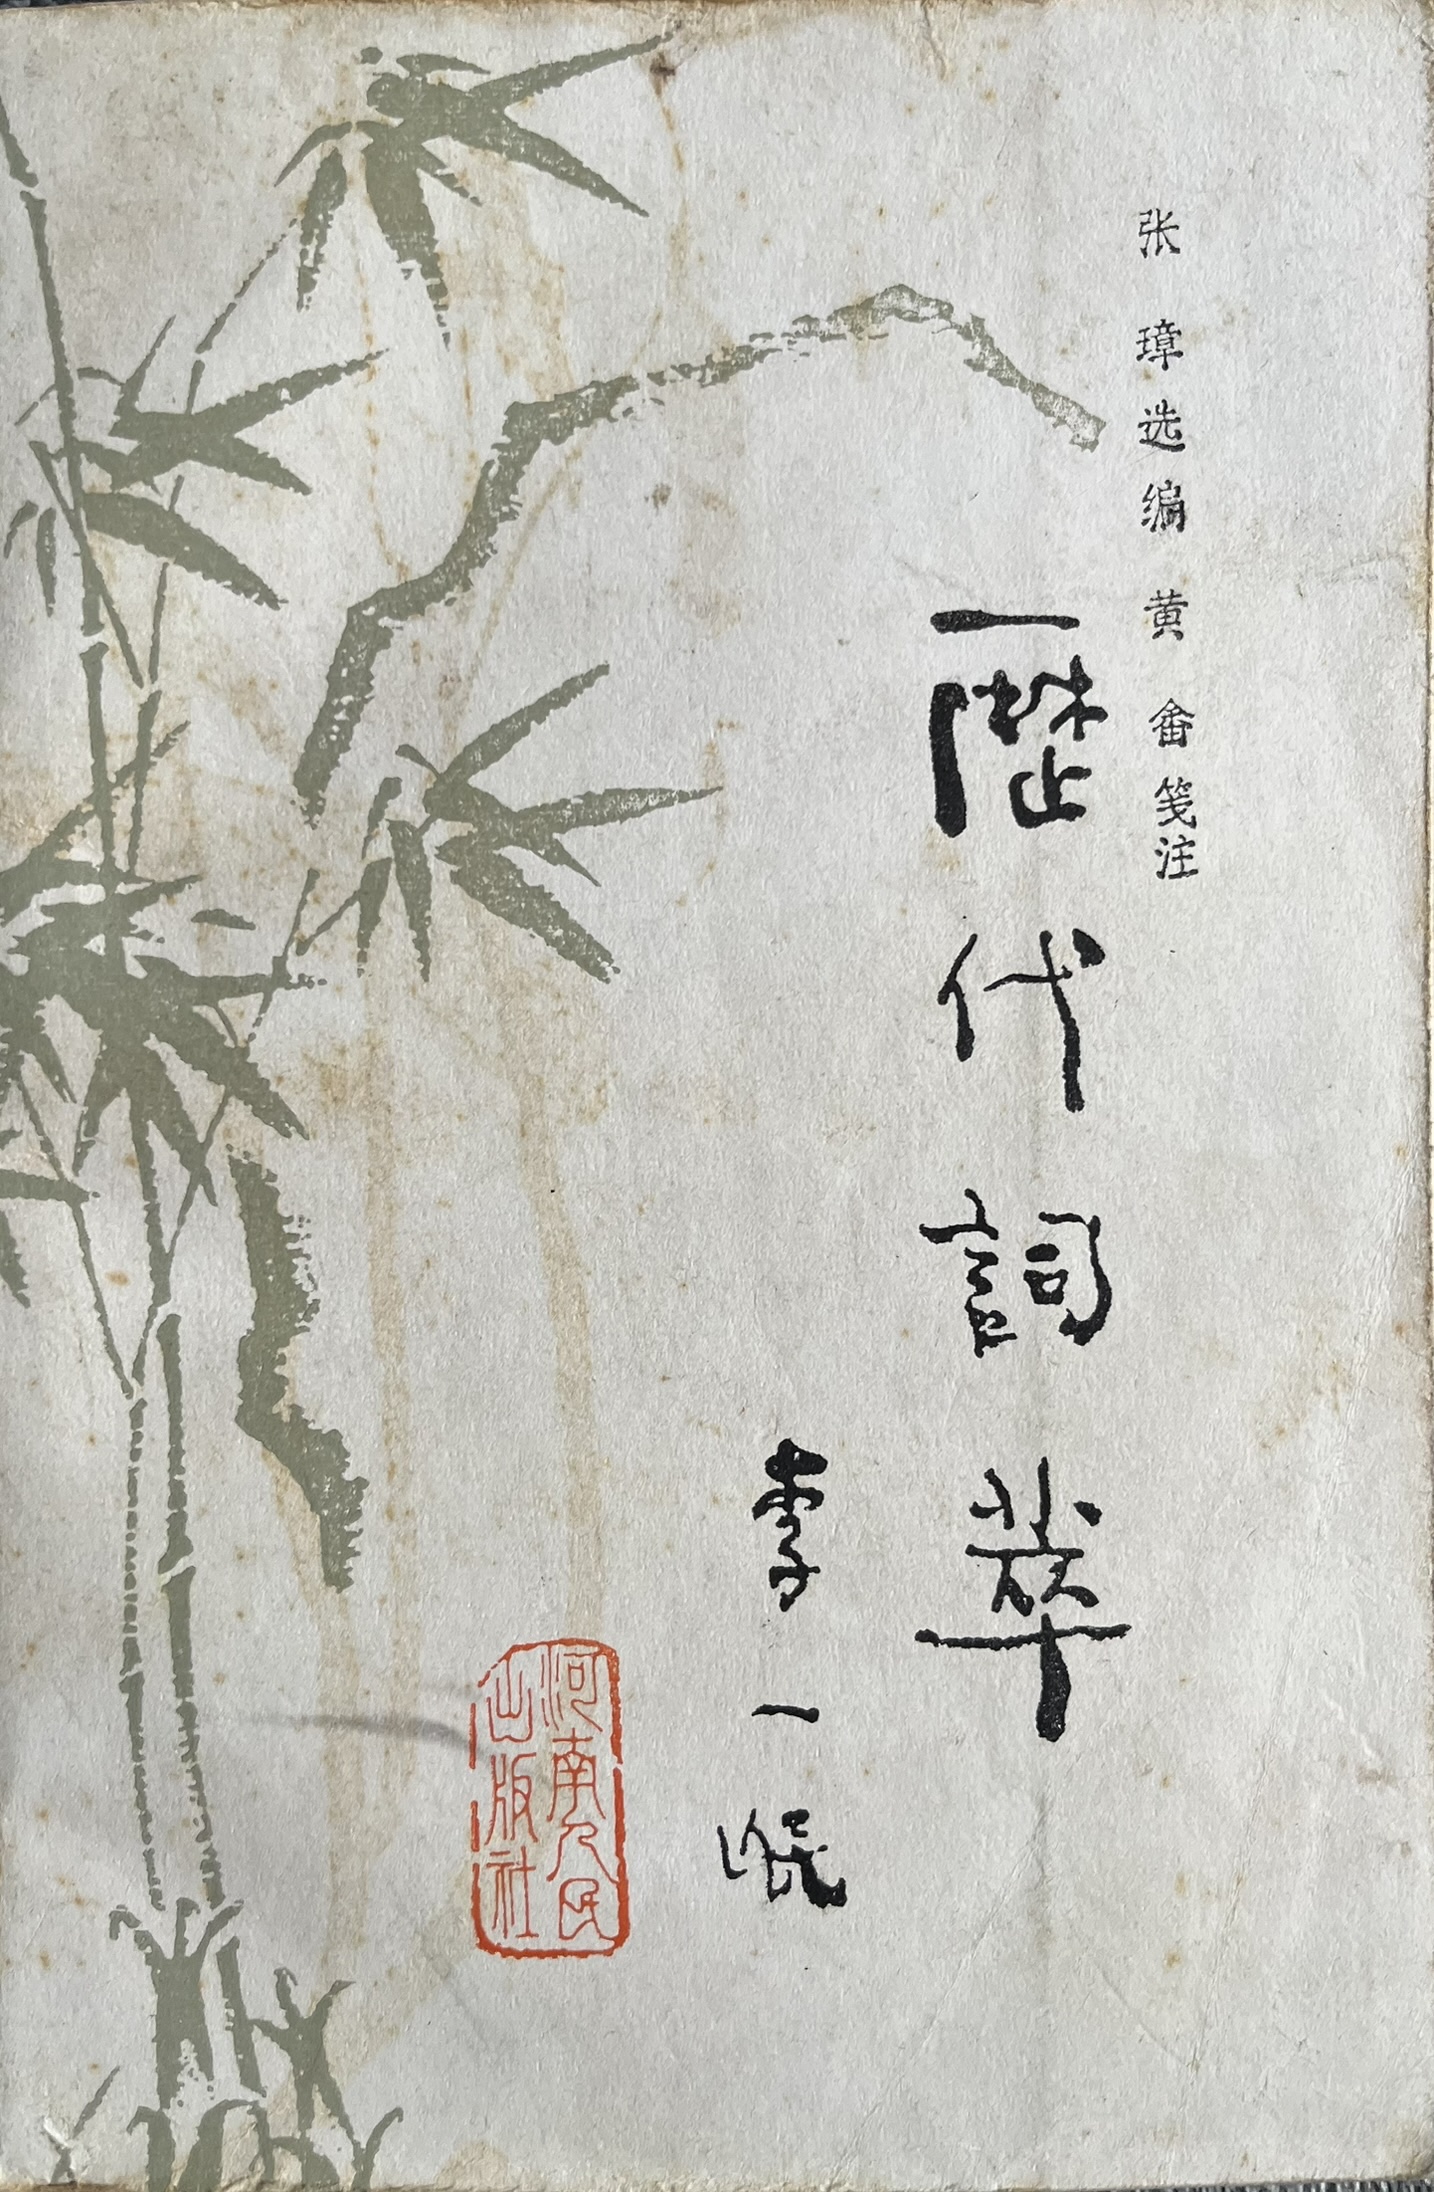 张璋选编 黄畬笺注
歷代詞萃
李一氓
河南人民
出版社